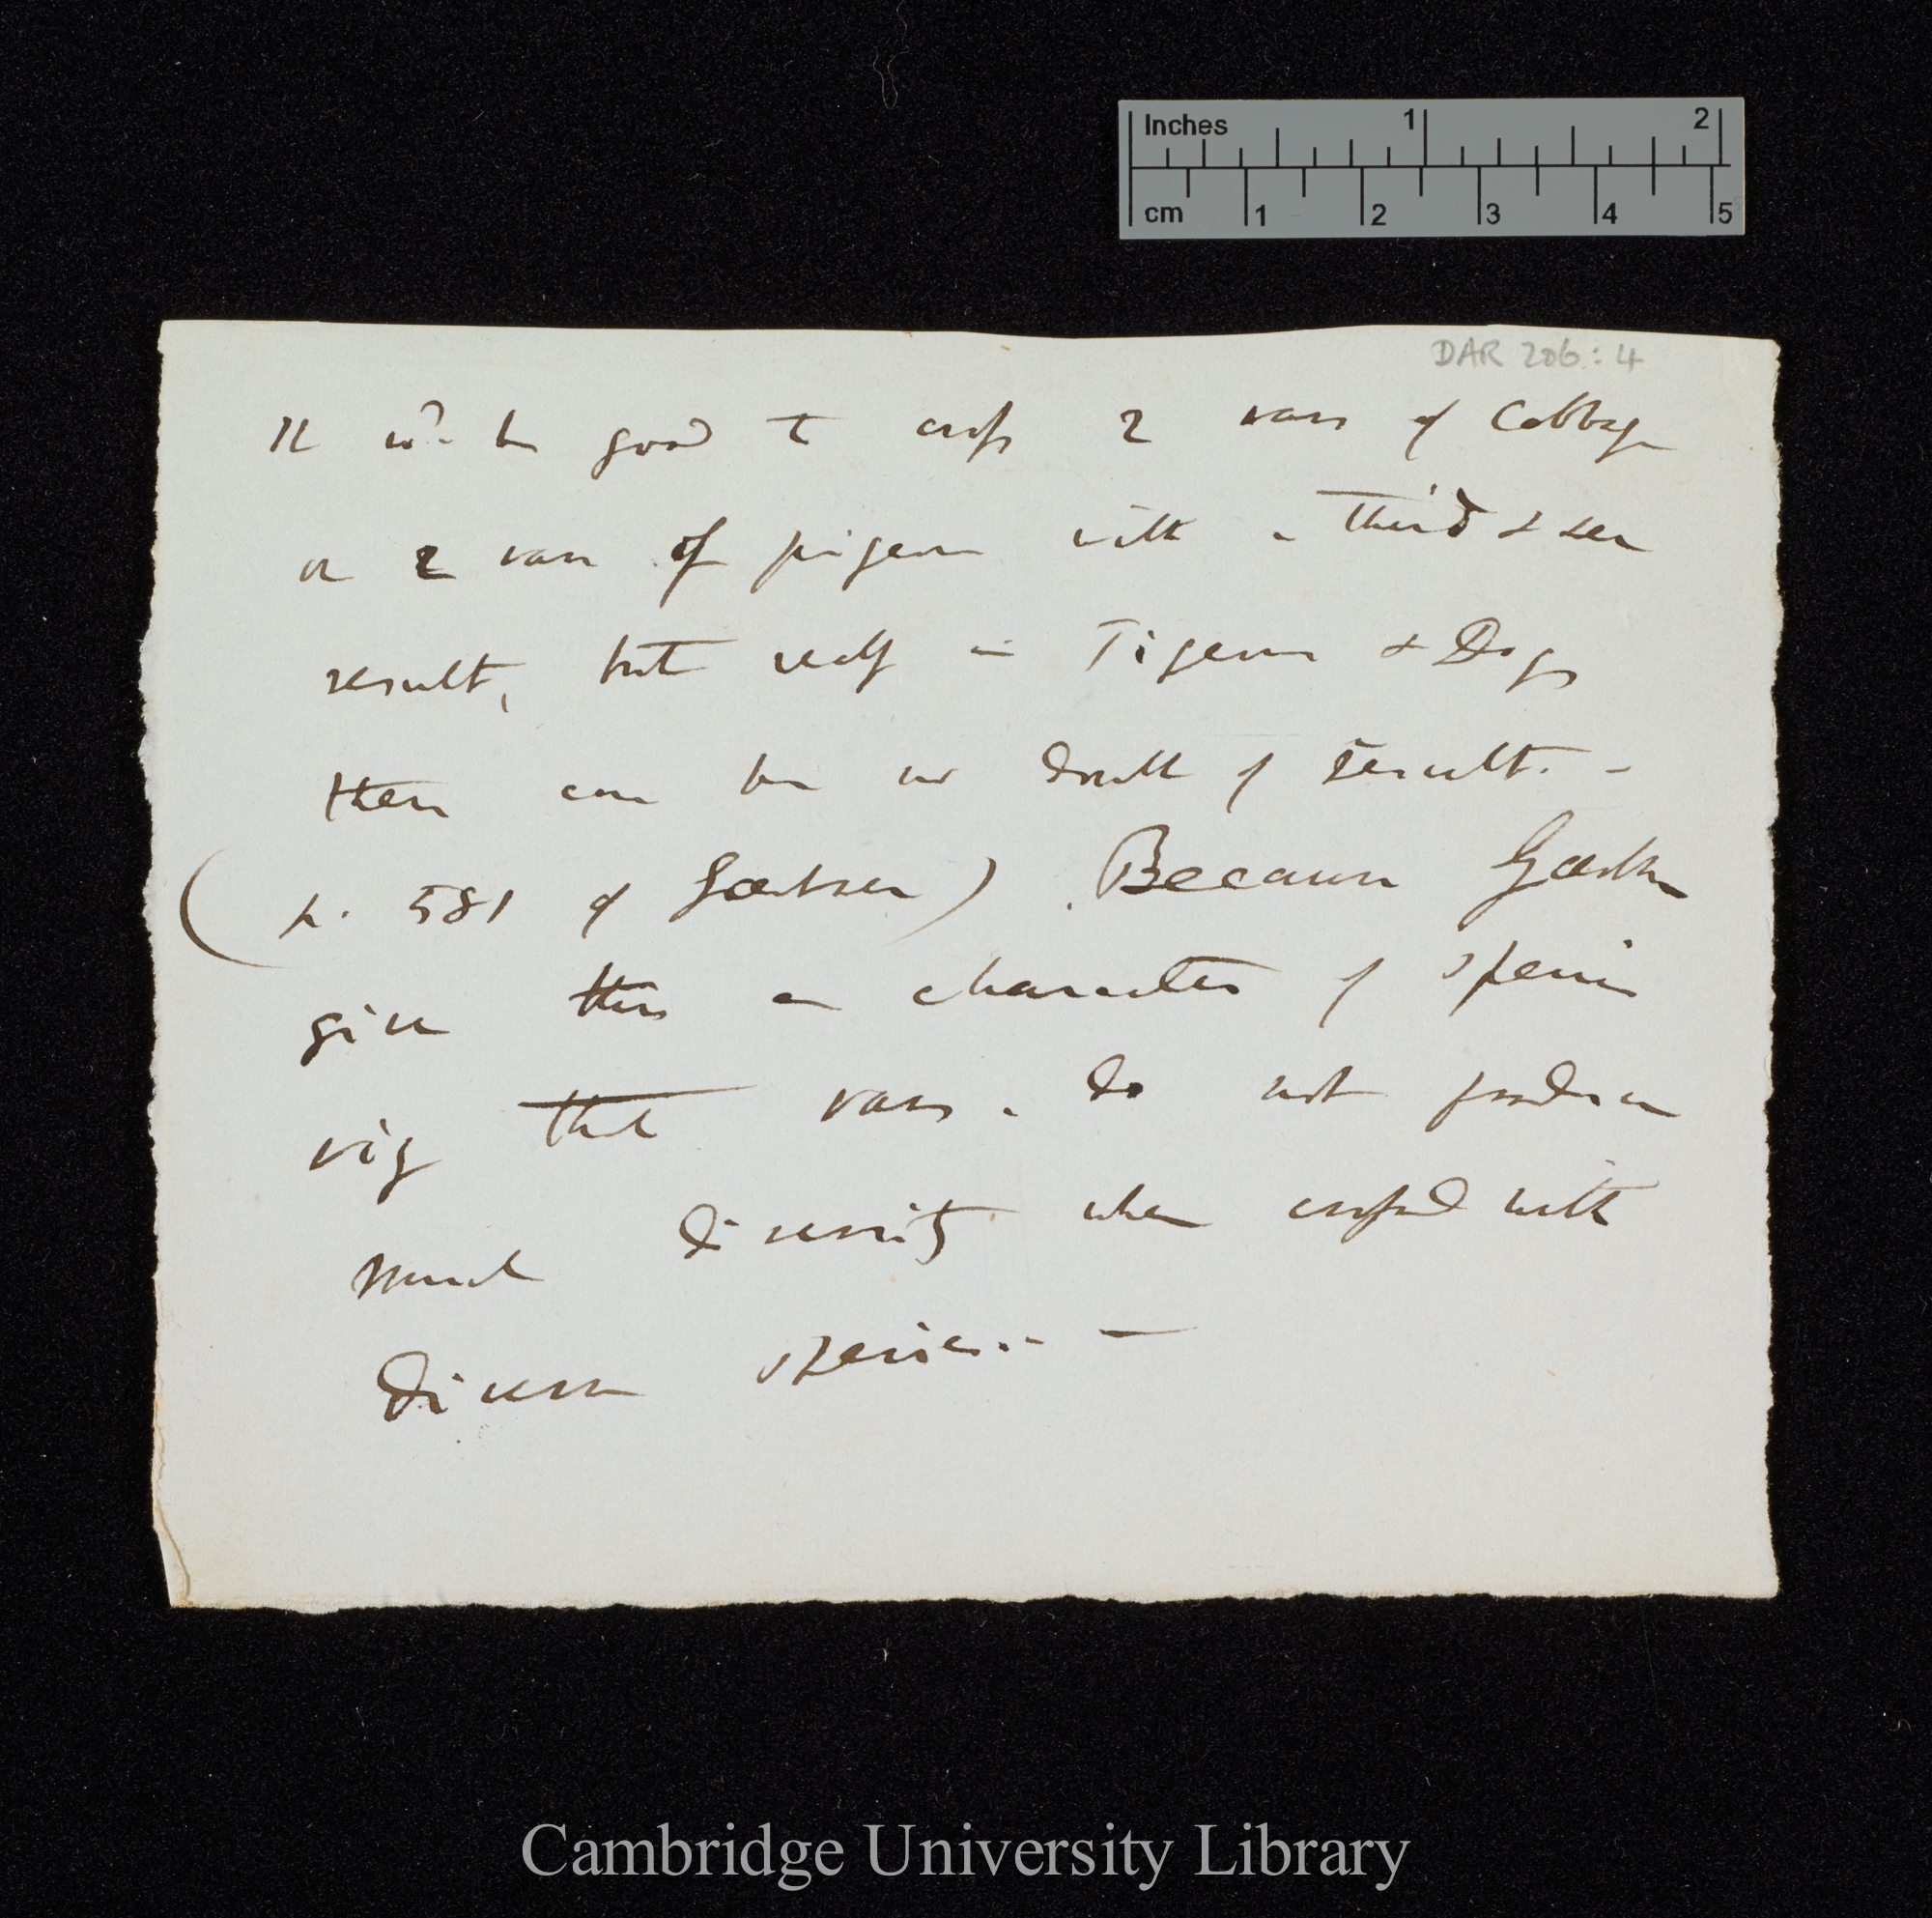 Inches 1 2
cm 1 2 3 4 5
DAR 206: 4
It wd. be good to cross 2 vars of Cabbage
or 2 vars of pigeon with a third & see
result, but really in Pigeons & Dogs
there can be no doubt of result. —
(p. 581 of Gærtner) Because Gærtner
gives this as character of species
viz that vars. do not produce
much diversity when crossed with
diverse species. —
Cambridge University Library